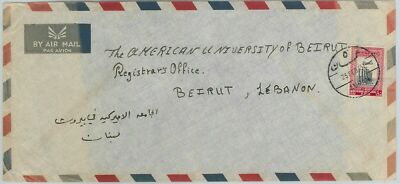 BY AIR MAIL
PAR AVION
The AMERICAN UNIVERSITY OF BEIRUT
Registrar's Office.
BEIRUT, LEBANON.
الجامعه الاميركيه في بيروت
لبنان